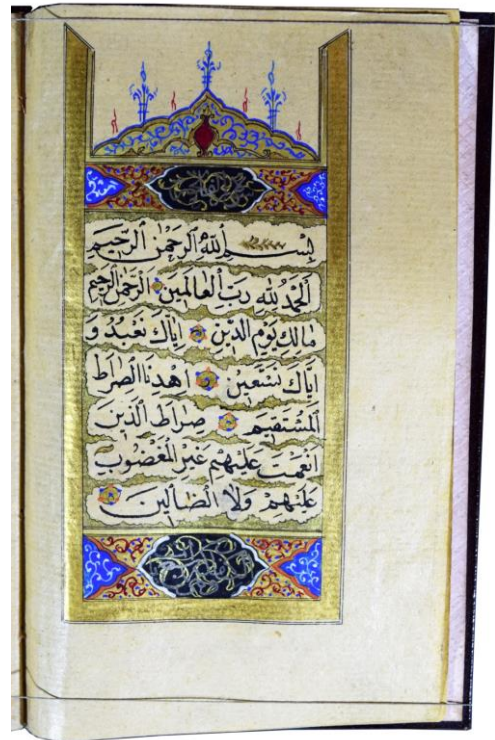 بِسْمِ اللّٰهِ الرَّحْمٰنِ الرَّحِيمِ
اَلْحَمْدُ لِلّٰهِ رَبِّ الْعَالَمِينَ الرَّحْمٰنِ الرَّحِيمِ
مَالِكِ يَوْمِ الدِّينِ اِيَّاكَ نَعْبُدُ وَ
اِيَّاكَ نَسْتَعِينُ اِهْدِنَا الصِّرَاطَ
الْمُسْتَقِيمَ صِرَاطَ الَّذِينَ
اَنْعَمْتَ عَلَيْهِمْ غَيْرِ الْمَغْضُوبِ
عَلَيْهِمْ وَلَا الضَّالِّينَ